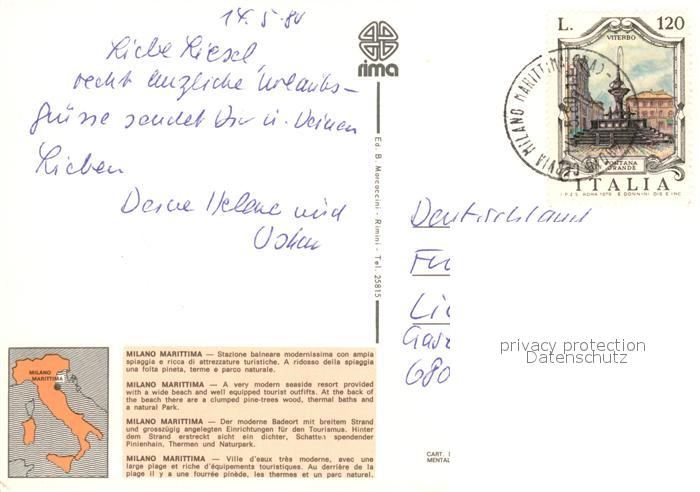 14.5.80
Liebe Liesel,
recht herzliche Urlaubs-
grüsse sendet Dir u. Deinen
Lieben
Deine Helene und
Oskar
rima
Ed. B. Marcaccini - Rimini - Tel. 25815
L. 120
VITERBO
FONTANA
GRANDE
ITALIA
I.P.Z.S. ROMA 1975 E. DONNINI DIS. E INC.
MILANO MARITTIMA
CERVIA
Deutschland
privacy protection
Datenschutz
680
MILANO
MARITTIMA
MILANO MARITTIMA — Stazione balneare modernissima con ampia
spiaggia e ricca di attrezzature turistiche. A ridosso della spiaggia
una folta pineta, terme e parco naturale.
MILANO MARITTIMA — A very modern seaside resort provided
with a wide beach and well equipped tourist outfits. At the back of
the beach there are a clumped pine-trees wood, thermal baths and
a natural Park.
MILANO MARITTIMA — Der moderne Badeort mit breitem Strand
und grosszügig angelegten Einrichtungen für den Tourismus. Hinter
dem Strand erstreckt sicht ein dichter, Schatten spendender
Pinienhain, Thermen und Naturpark.
MILANO MARITTIMA — Ville d'eaux très moderne, avec une
large plage et riche d'équipements touristiques. Au derrière de la
plage il y a une fourrée pinède, les thermes et un parc naturel.
CART.
MENTAL